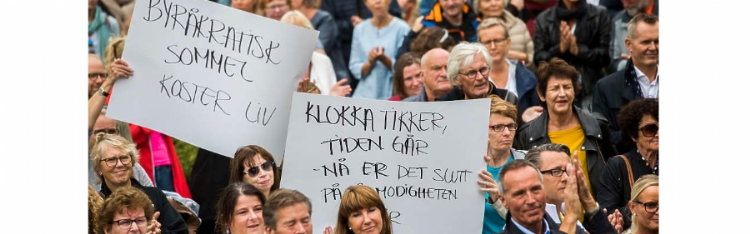 BYRÅKRATISK
SOMMEL
KOSTER LIV
KLOKKA TIKKER,
TIDEN GÅR
-NÅ ER DET SLUTT
PÅ MODIGHETEN